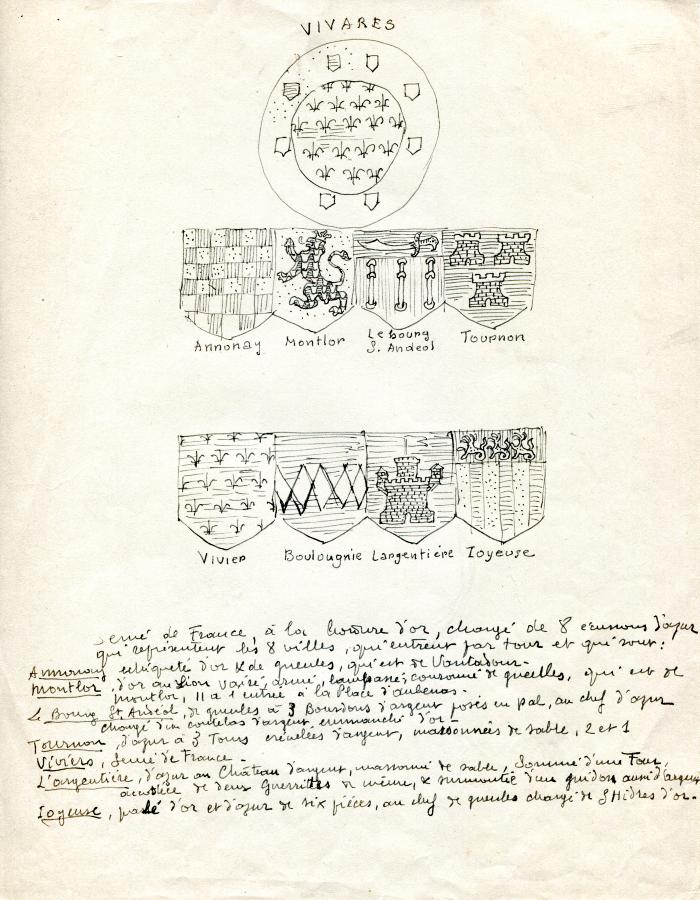 VIVARES
Annonay Montlor Le bourg Tournon
S. Andeol
Vivier Boulougnie Largentière Ioyeuse
Semé de France, à la bordure d'or, chargé de 8 écussons d'azur
qui représentent les 8 villes, qui entrent par tour et qui sont:
Annonay échiqueté d'or & de gueules, qui est de Vantadour.
Montlor, d'or au Lion vairé, armé, lampassé, couronné de gueulles, qui est de
Montlor, Il a l'entrée à la Place d'aubenas.
Le Bourg St. Andéol, de gueules à 3 Bourdons d'argent posés en pal, au chef d'azur
chargé d'un coutelas d'argent emmanché d'or
Tournon, d'azur à 3 Tours crénelées d'argent, massonnées de sable, 2 et 1
Viviers, Semé de France.
L'argentière, d'azur au Château d'argent, massonné de sable, Sommé d'une Tour,
de deux Guerrittes de même, & surmontée d'un guidon aussi d'argent
Ioyeuse, palé d'or et d'azur de six pièces, au chef de gueules chargé de 3 Hidres d'or.